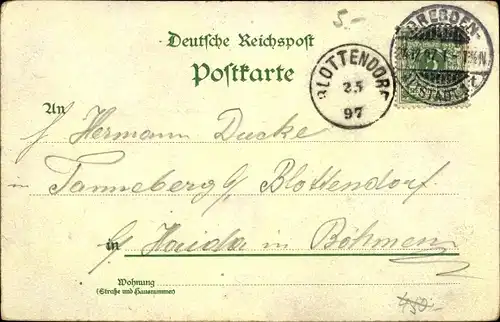 5.-
Deutsche Reichspost
Postkarte
BLOTTENDORF
25
97
DRESDEN-
An
Hermann Ducke
in Tanneberg b/ Blottendorf
b/ Haida in Böhmen
in
Wohnung
(Straße und Hausnummer)
450.-